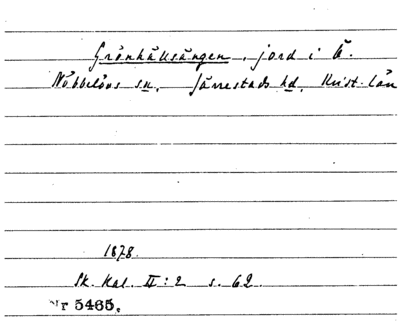 Grönhällsängen, jord i Ö.
Nöbbelövs sn, Järrestads hd, Krist. län
1878.
Sk. Kal. II:2 s. 62.
Nr 5465.